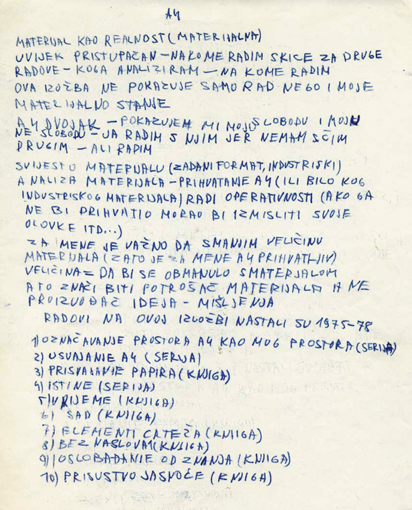 A4
MATERIJAL KAO REALNOST (MATERIJALNA)
UVIJEK PRISTUPAČAN – NA KOME RADIM SKICE ZA DRUGE
RADOVE – KOGA ANALIZIRAM – NA KOME RADIM
OVA IZLOŽBA NE POKAZUJE SAMO RAD NEGO I MOJE
MATERIJALNO STANJE
A4 DVOJAK – POKAZUJEM MI MOJU SLOBODU I MOJU
NE SLOBODU – JA RADIM S NJIM JER NEMAM S ČIM
DRUGIM – ALI RADIM
SVIJEST O MATERIJALU (ZADANI FORMAT, INDUSTRISKI)
ANALIZA MATERIJALA – PRIHVATANJE A4 (ILI BILO KOG
INDUSTRISKOG MATERIJALA) RADI OPERATIVNOSTI (AKO GA
NE BI PRIHVATIO MORAO BI IZMISLITI SVOJE
OLOVKE ITD...)
ZA MENE JE VAŽNO DA SMANJIM VELIČINU
MATERIJALA (ZATO JE ZA MENE A4 PRIHVATLJIV)
VELIČINA = DA BI SE OBMANULO S MATERJALOM
A TO ZNAČI BITI POTROŠAČ MATERIJALA A NE
PROIZVOĐAČ IDEJA – MIŠLJENJA
RADOVI NA OVOJ IZLOŽBI NASTALI SU 1975-78
1) OZNAČAVANJE PROSTORA A4 KAO MOG PROSTORA (SERIJA)
2) USVAJANJE A4 (SERIJA)
3) PRISVAJANJE PAPIRA (KNJIGA)
4) ISTINE (SERIJA)
5) VRIJEME (KNJIGA)
6) SAD (KNJIGA)
7) ELEMENTI CRTEŽA (KNJIGA)
8) BEZ NASLOVA (KNJIGA)
9) OSLOBAĐANJE OD ZNANJA (KNJIGA)
10) PRISUSTVO JASNOĆE (KNJIGA)